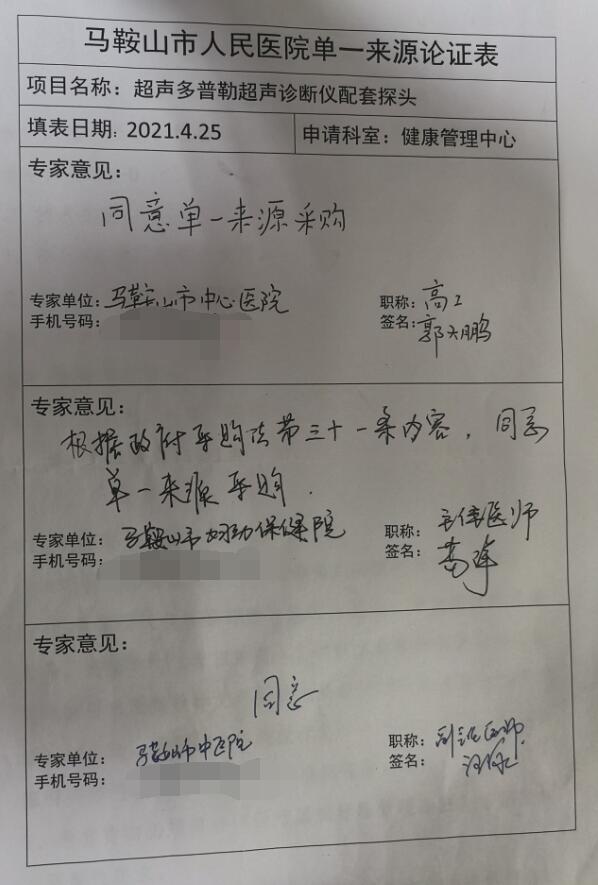 马鞍山市人民医院单一来源论证表
项目名称：超声多普勒超声诊断仪配套探头
填表日期：2021.4.25 申请科室：健康管理中心
专家意见：
同意单一来源采购
专家单位：马鞍山市中心医院 职称：高工
手机号码： 签名：郭大鹏
专家意见：
根据政府采购法第三十一条内容，同意
单一来源采购.
专家单位：马鞍山市妇幼保健院 职称：主任医师
手机号码： 签名：
专家意见：
同意
专家单位：马鞍山市中医院 职称：副主任医师
手机号码： 签名：